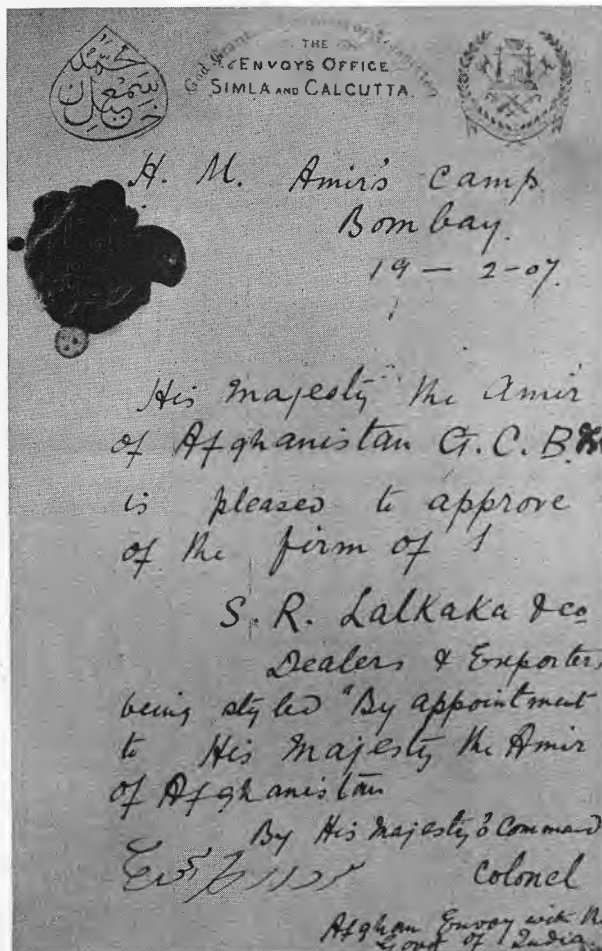 God Grant
THE
ENVOYS OFFICE
SIMLA AND CALCUTTA.
H. M. Amir's Camp
Bombay.
19 - 2-07.
His Majesty the Amir
of Afghanistan G.C.B.
is pleased to approve
of the firm of
S. R. Lalkaka & co
Dealers & Exporters
being styled "By appointment
to His Majesty the Amir
of Afghanistan
By His Majesty's Command
Colonel
Afghan Envoy with the
Govt of India